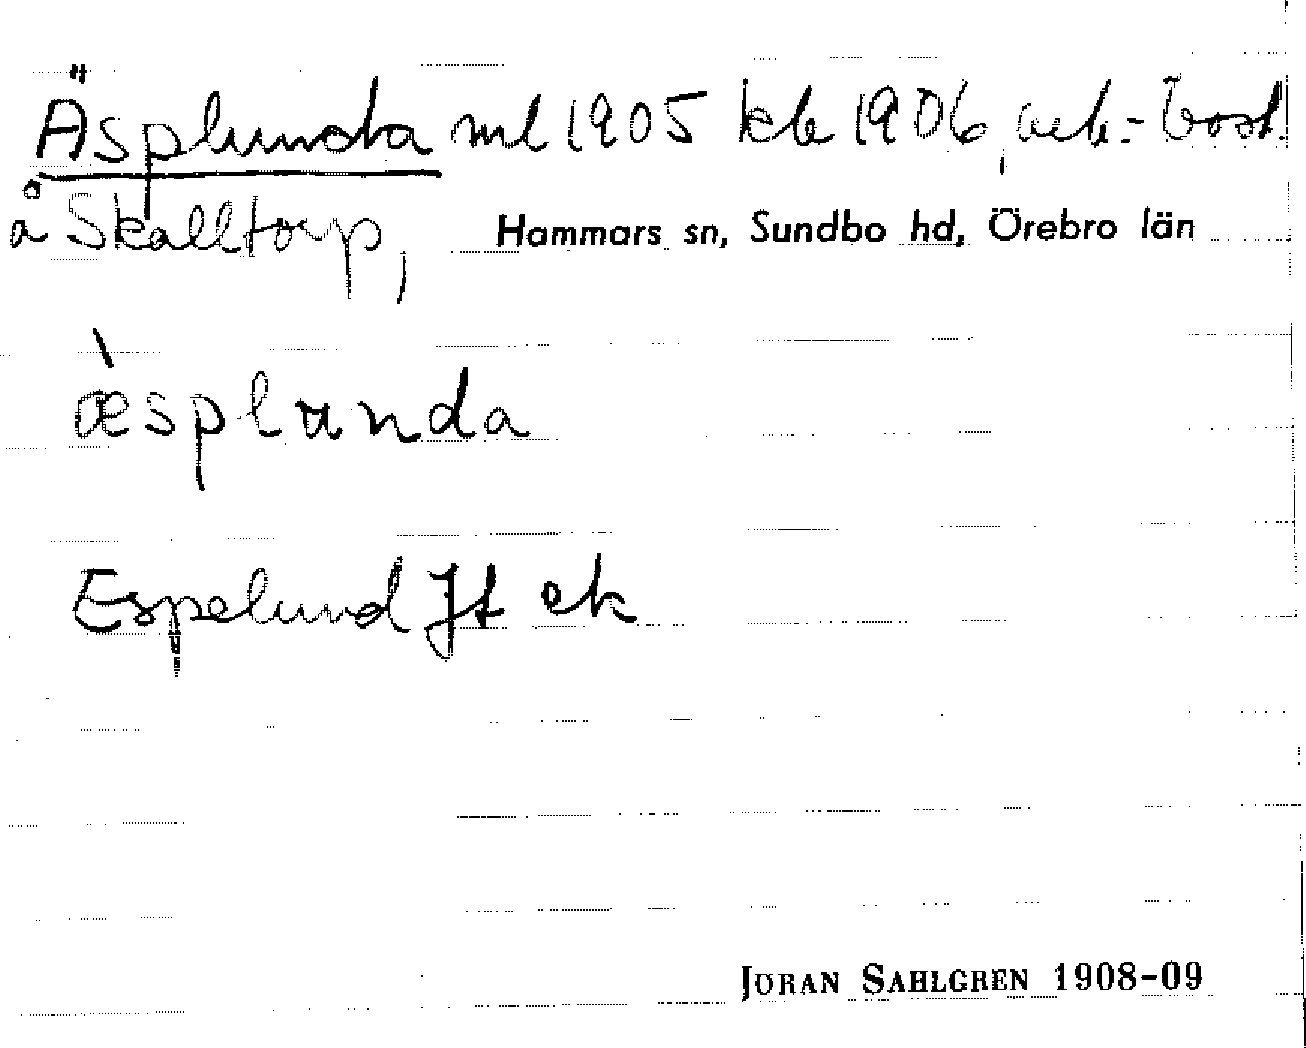 Äsplunda ml 1905 kb 1906, arb.-bost.
å Skalltorp, Hammars sn, Sundbo hd, Örebro län
æ̀splunda
Espelund Jt ek
JÖRAN SAHLGREN 1908-09